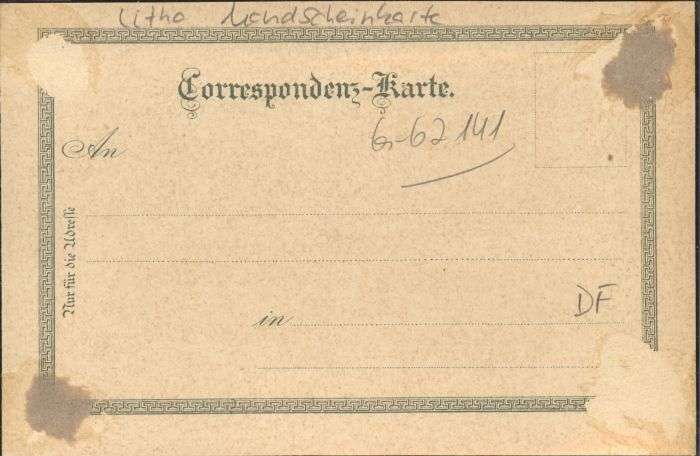 Litho Mondscheinkarte
Correspondenz-Karte.
6-62141
An
Nur für die Adresse
DF
in